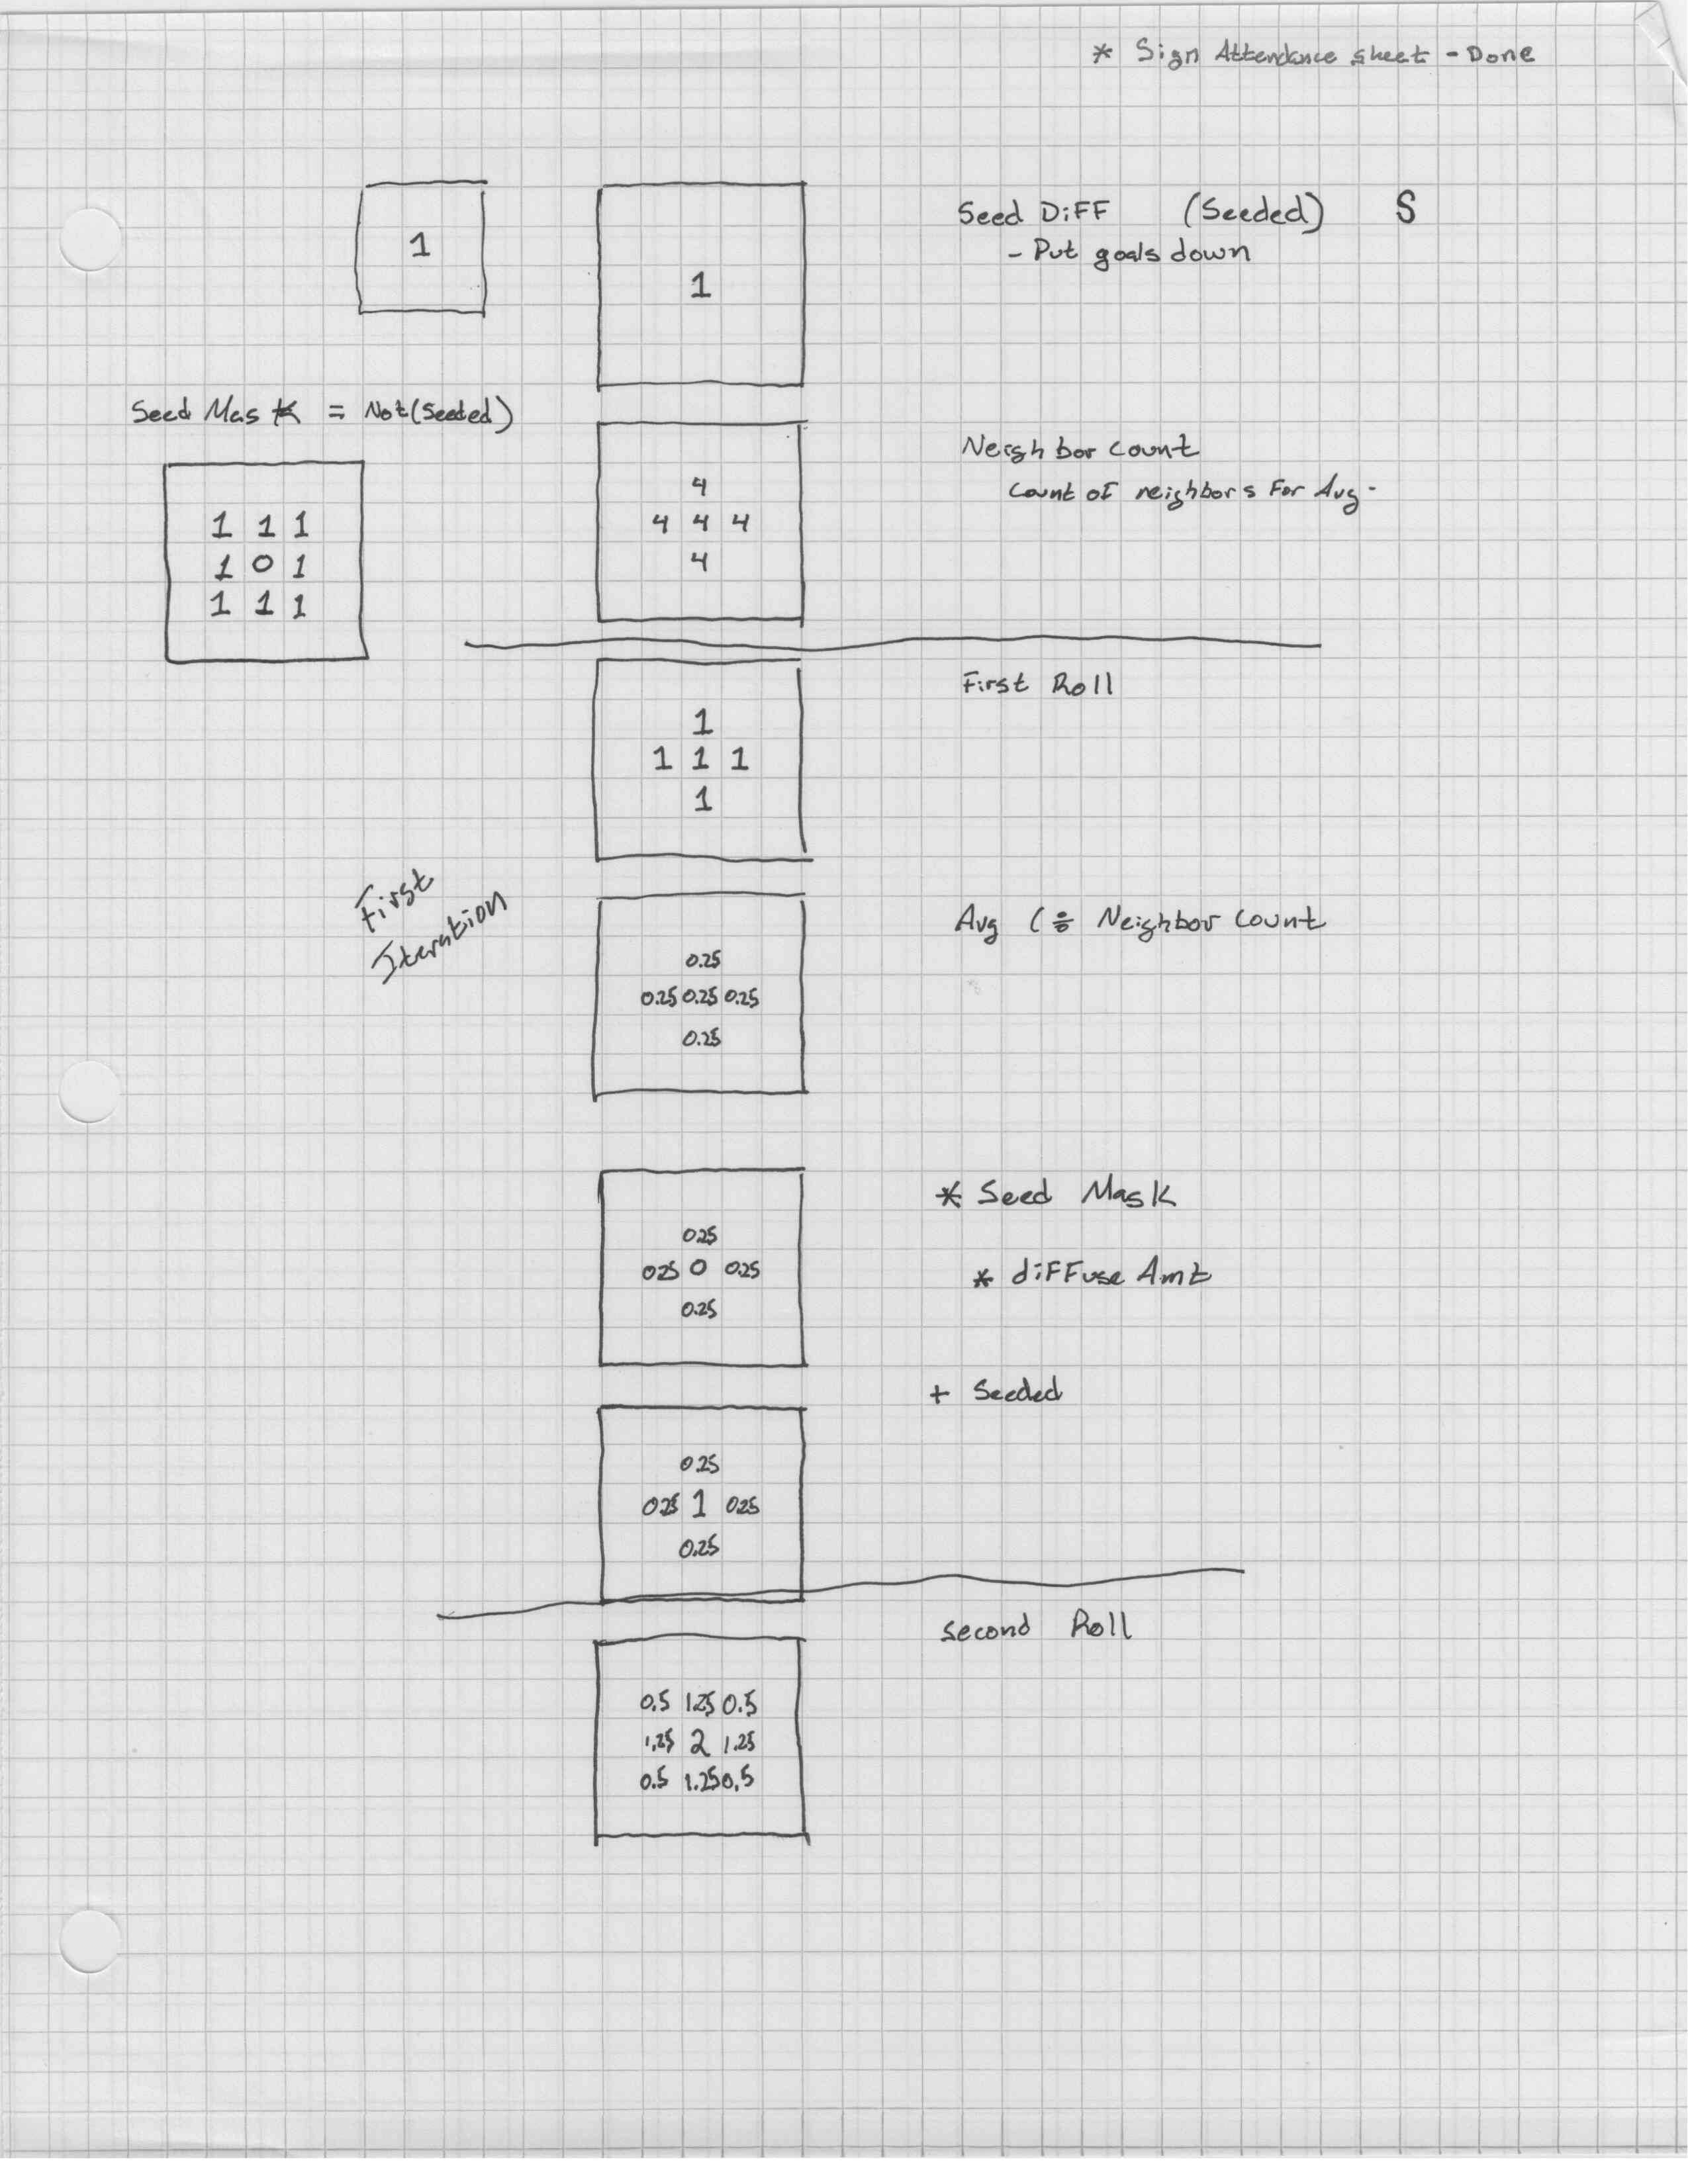 * Sign Attendance sheet - Done
1
1
Seed Diff (Seeded) S
- Put goals down
Seed Mask = Not(Seeded)
1 1 1
1 0 1
1 1 1
4
4 4 4
4
Neighbor count
count of neighbors For Avg.
First Roll
1
1 1 1
1
First
Iteration
Avg (÷ Neighbor count
0.25
0.25 0.25 0.25
0.25
* Seed Mask
* diffuse Amt
0.25
0.25 0 0.25
0.25
+ Seeded
0.25
0.25 1 0.25
0.25
second Roll
0.5 1.25 0.5
1.25 2 1.25
0.5 1.25 0.5